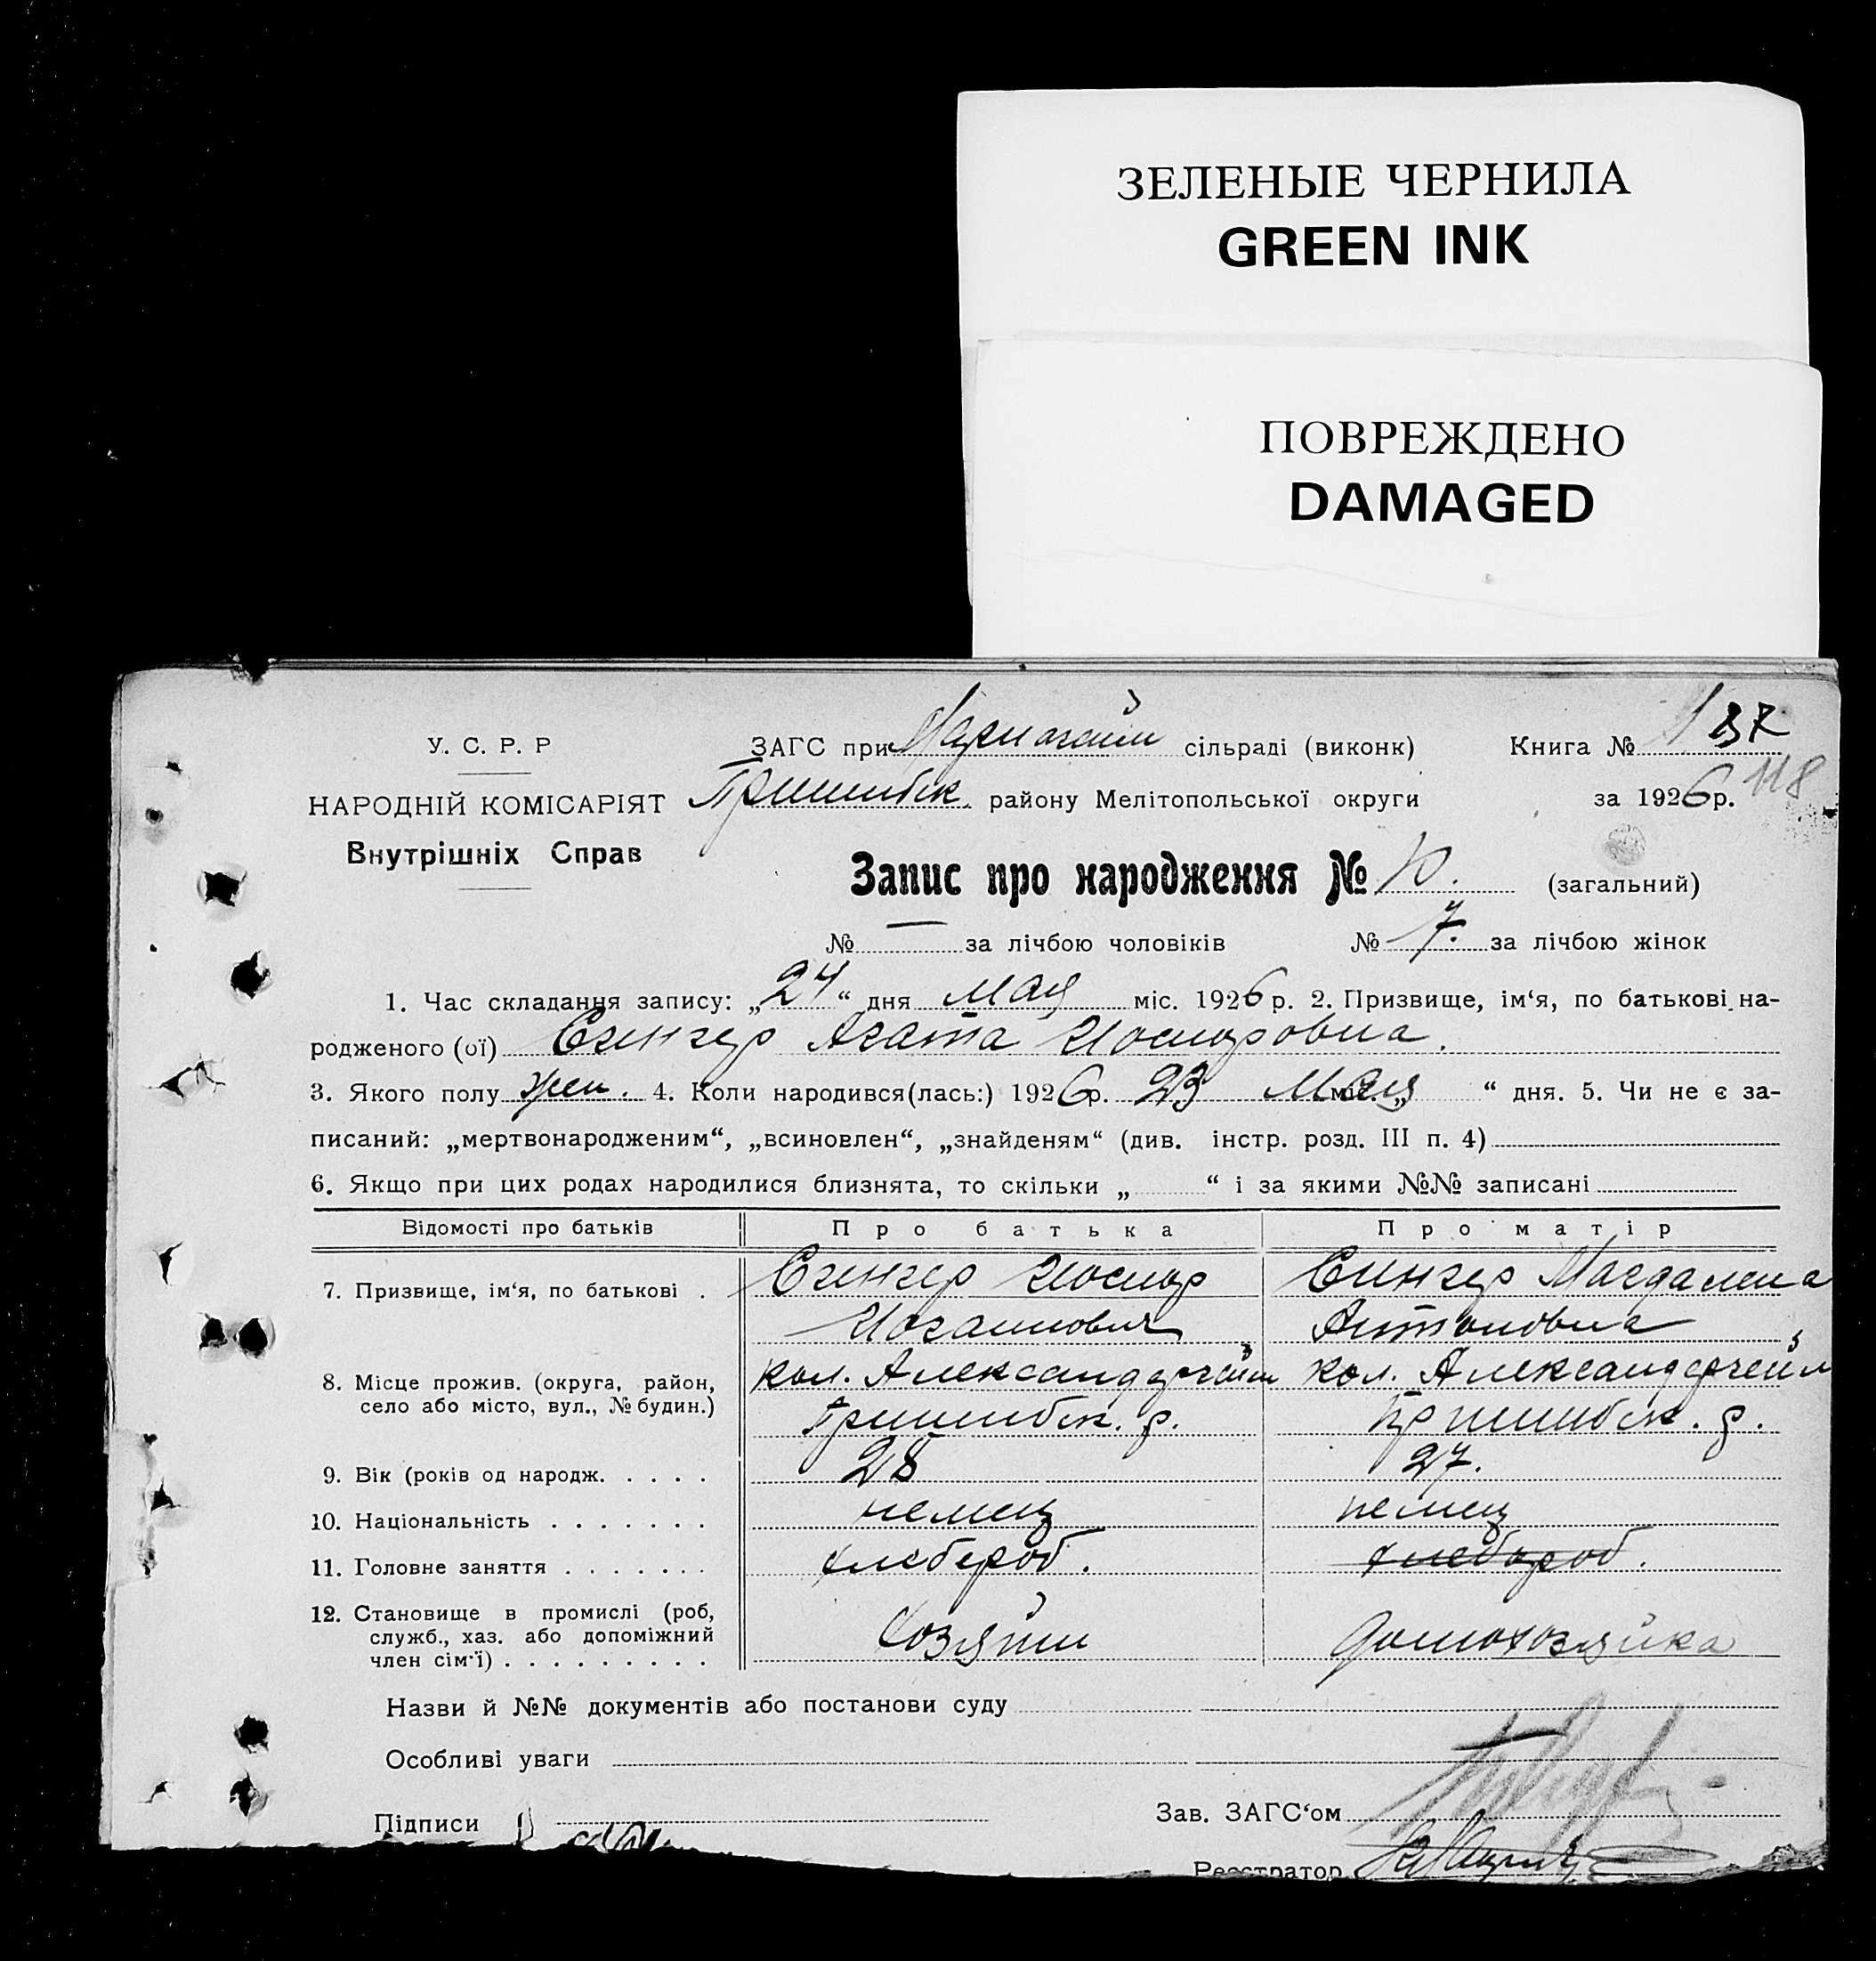 ЗЕЛЕНЫЕ ЧЕРНИЛА
GREEN INK
ПОВРЕЖДЕНО
DAMAGED
137
У. С. Р. Р ЗАГС при сільраді (виконк) Книга №
118
НАРОДНІЙ КОМІСАРІЯТ Пришибск. району Мелітопольської округи за 1926 р.
Внутрішніх Справ
Запис про народження № 10. (загальний)
№ — за лічбою чоловіків № 7. за лічбою жінок
1. Час складання запису: „24“ дня мая міс. 1926 р. 2. Призвище, ім‘я, по батькові на-
родженого (ої) Сингер Агата Иосифовна.
3. Якого полу жен. 4. Коли народився(лась:) 1926 р. 23 Мая міс. „ “ дня. 5. Чи не є за-
писаний: „мертвонародженим“, „всиновлен“, „знайденям“ (див. інстр. розд. III п. 4)
6. Якщо при цих родах народилися близнята, то скільки „ “ і за якими №№ записані
Відомості про батьків Про батька Про матір
7. Призвище, ім‘я, по батькові . Сингер Иосиф Сингер Магдалена
Иоганнович Антоновна
8. Місце прожив. (округа, район, кол. Александергейм кол. Александергейм
село або місто, вул., № будин.) Пришибск. р. Пришибск. р.
9. Вік (років од народж. . . . . 28 27.
10. Національність . . . . . . . немец немец
11. Головне заняття . . . . . . . хлебороб. хлебороб.
12. Становище в промислі (роб,
служб., хаз. або допоміжний хозяин домохозяйка
член сім‘ї) . . . . . . . . .
Назви й №№ документів або постанови суду
Особливі уваги
Підписи Зав. ЗАГС‘ом
Реєстратор